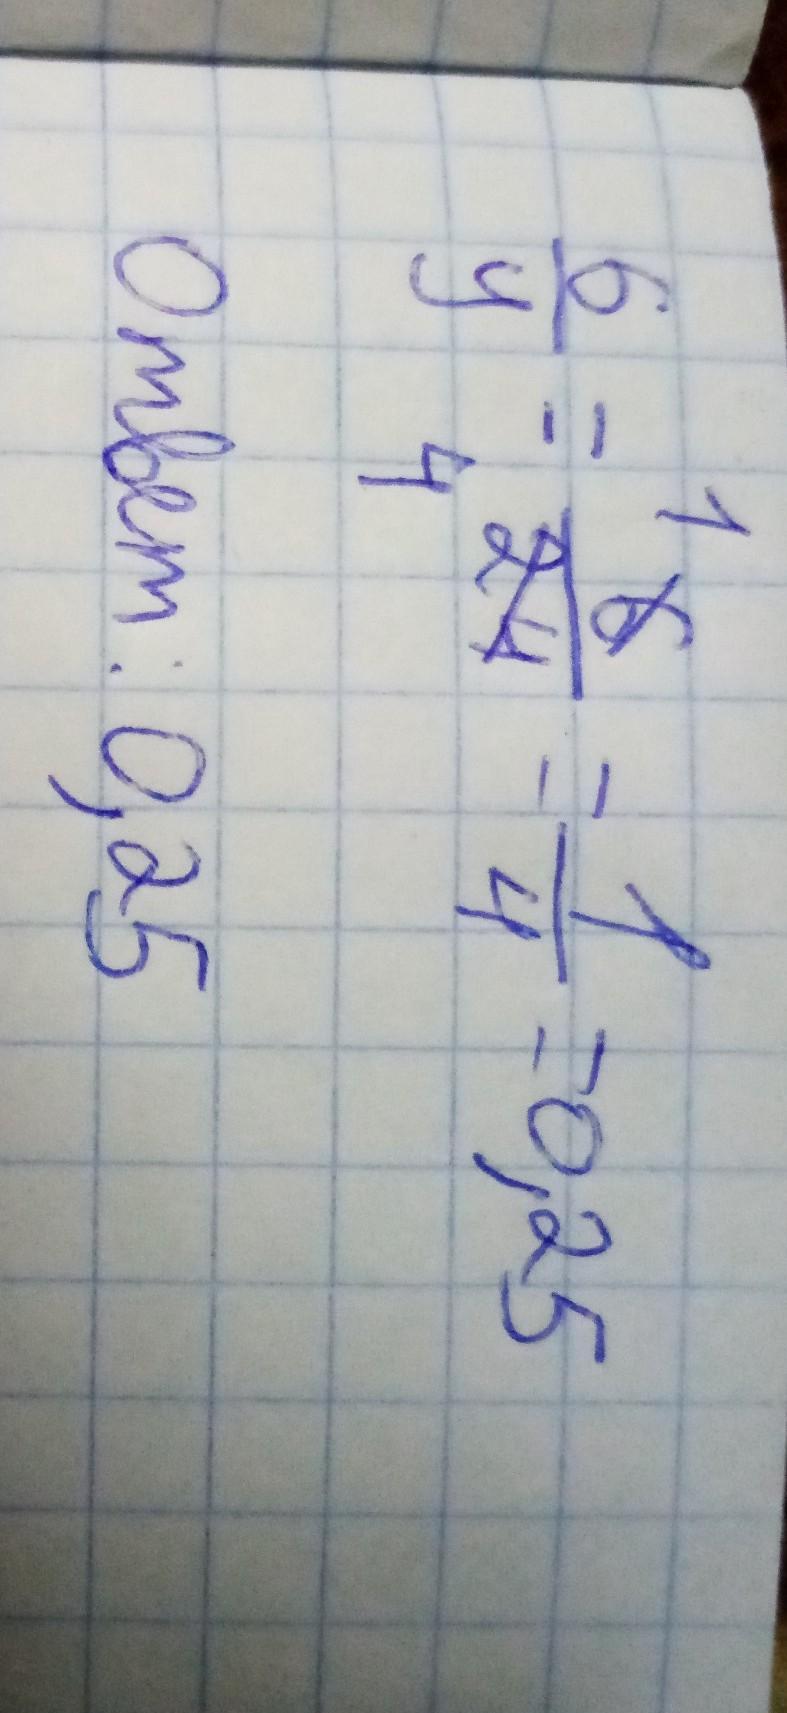 6/y = 6/24 = 1/4 = 0,25
1
4
Ответ: 0,25